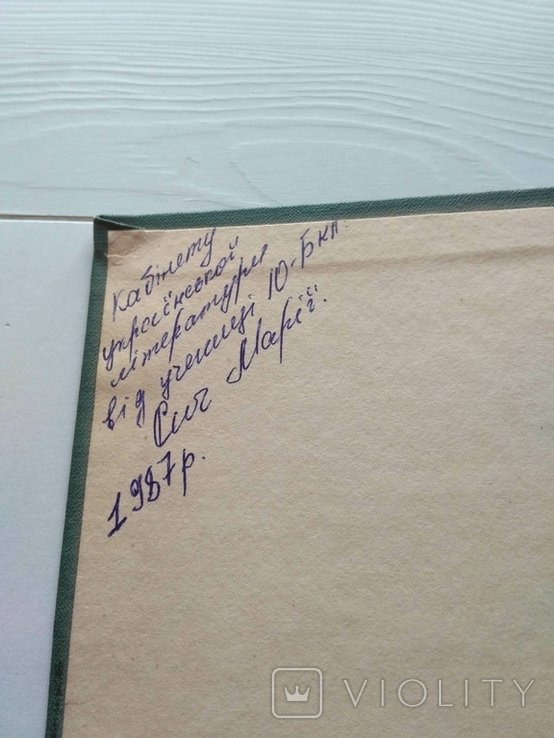 Кабінету
української
літератури
від учениці 10-Б кл
Сич Марії.
1987р.
VIOLITY